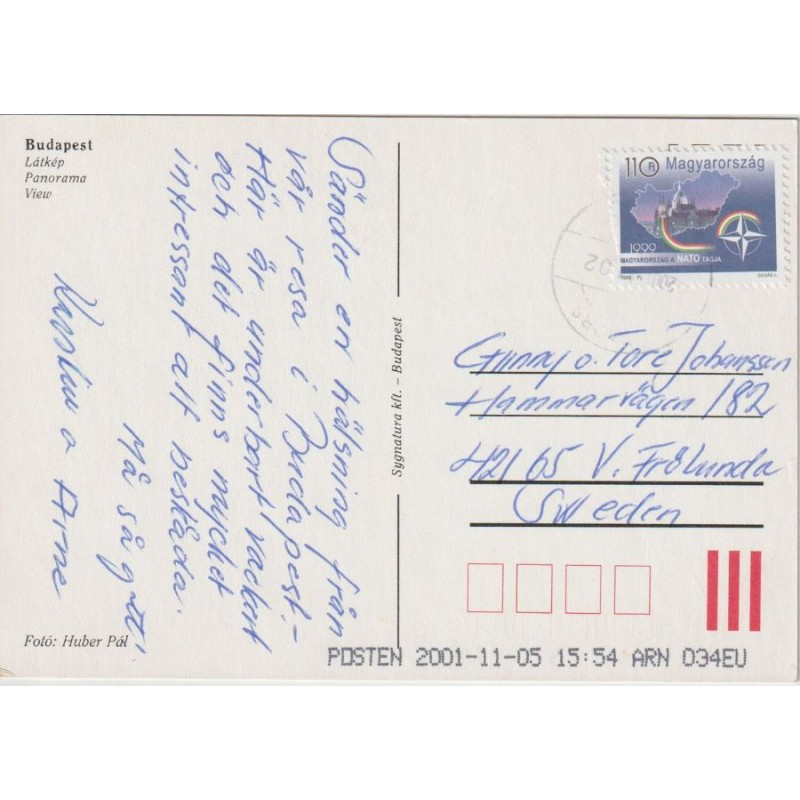 Budapest
Látkép
Panorama
View
Sänder en hälsning från
vår resa i Budapest.-
Här är underbart vackert
och det finns mycket
intressant att beskåda.
Må så gott!
Kerstin o Arne
Fotó: Huber Pál
Sygnatura kft. – Budapest
110 Ft Magyarország
1999
MAGYARORSZÁG A NATO TAGJA
Gunny o. Tore Johansson
Hammarvägen 182
421 65 V. Frölunda
Sweden
POSTEN 2001-11-05 15:54 ARN 034EU